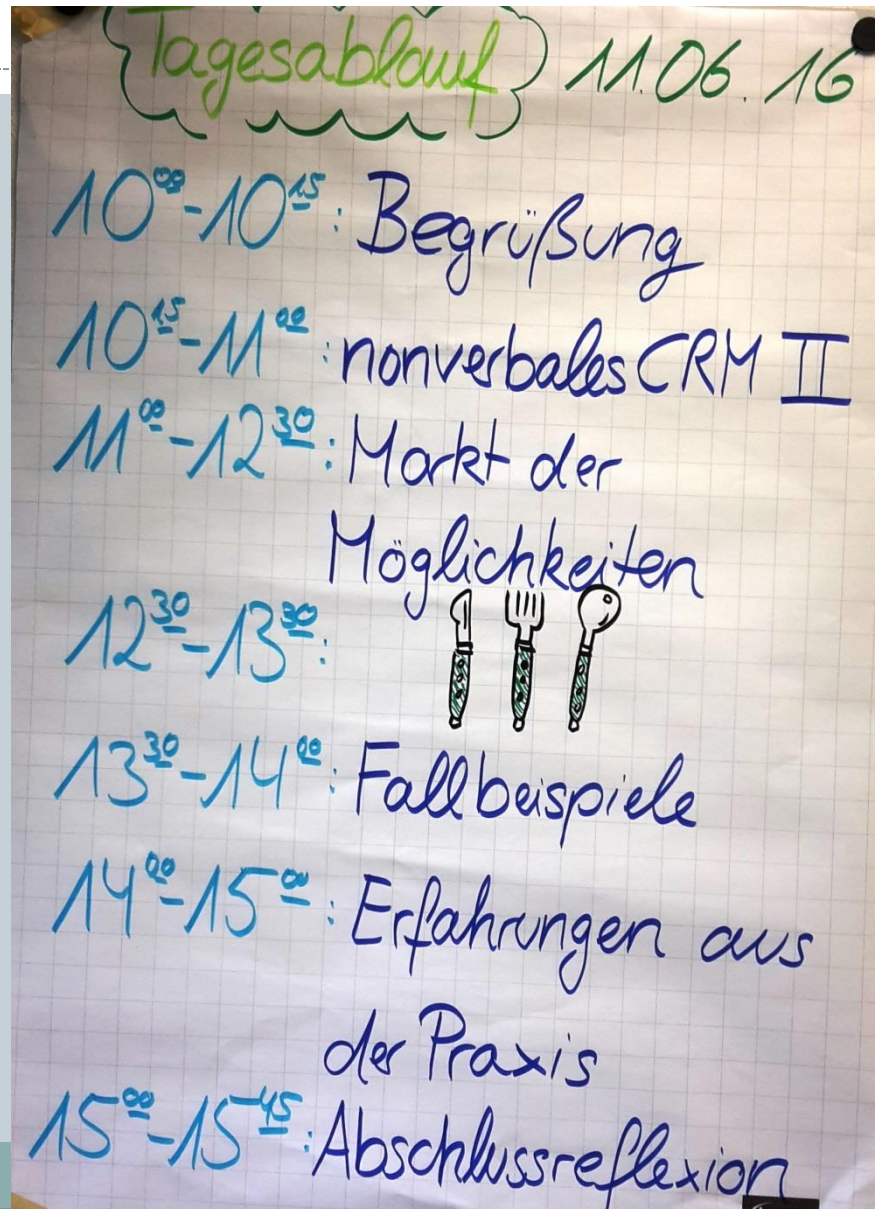 Tagesablauf 11.06.16
10⁰⁰-10¹⁵: Begrüßung
10¹⁵-11⁰⁰: nonverbales CRM II
11⁰⁰-12³⁰: Markt der
Möglichkeiten
12³⁰-13³⁰:
13³⁰-14⁰⁰: Fallbeispiele
14⁰⁰-15⁰⁰: Erfahrungen aus
der Praxis
15⁰⁰-15⁴⁵: Abschlussreflexion